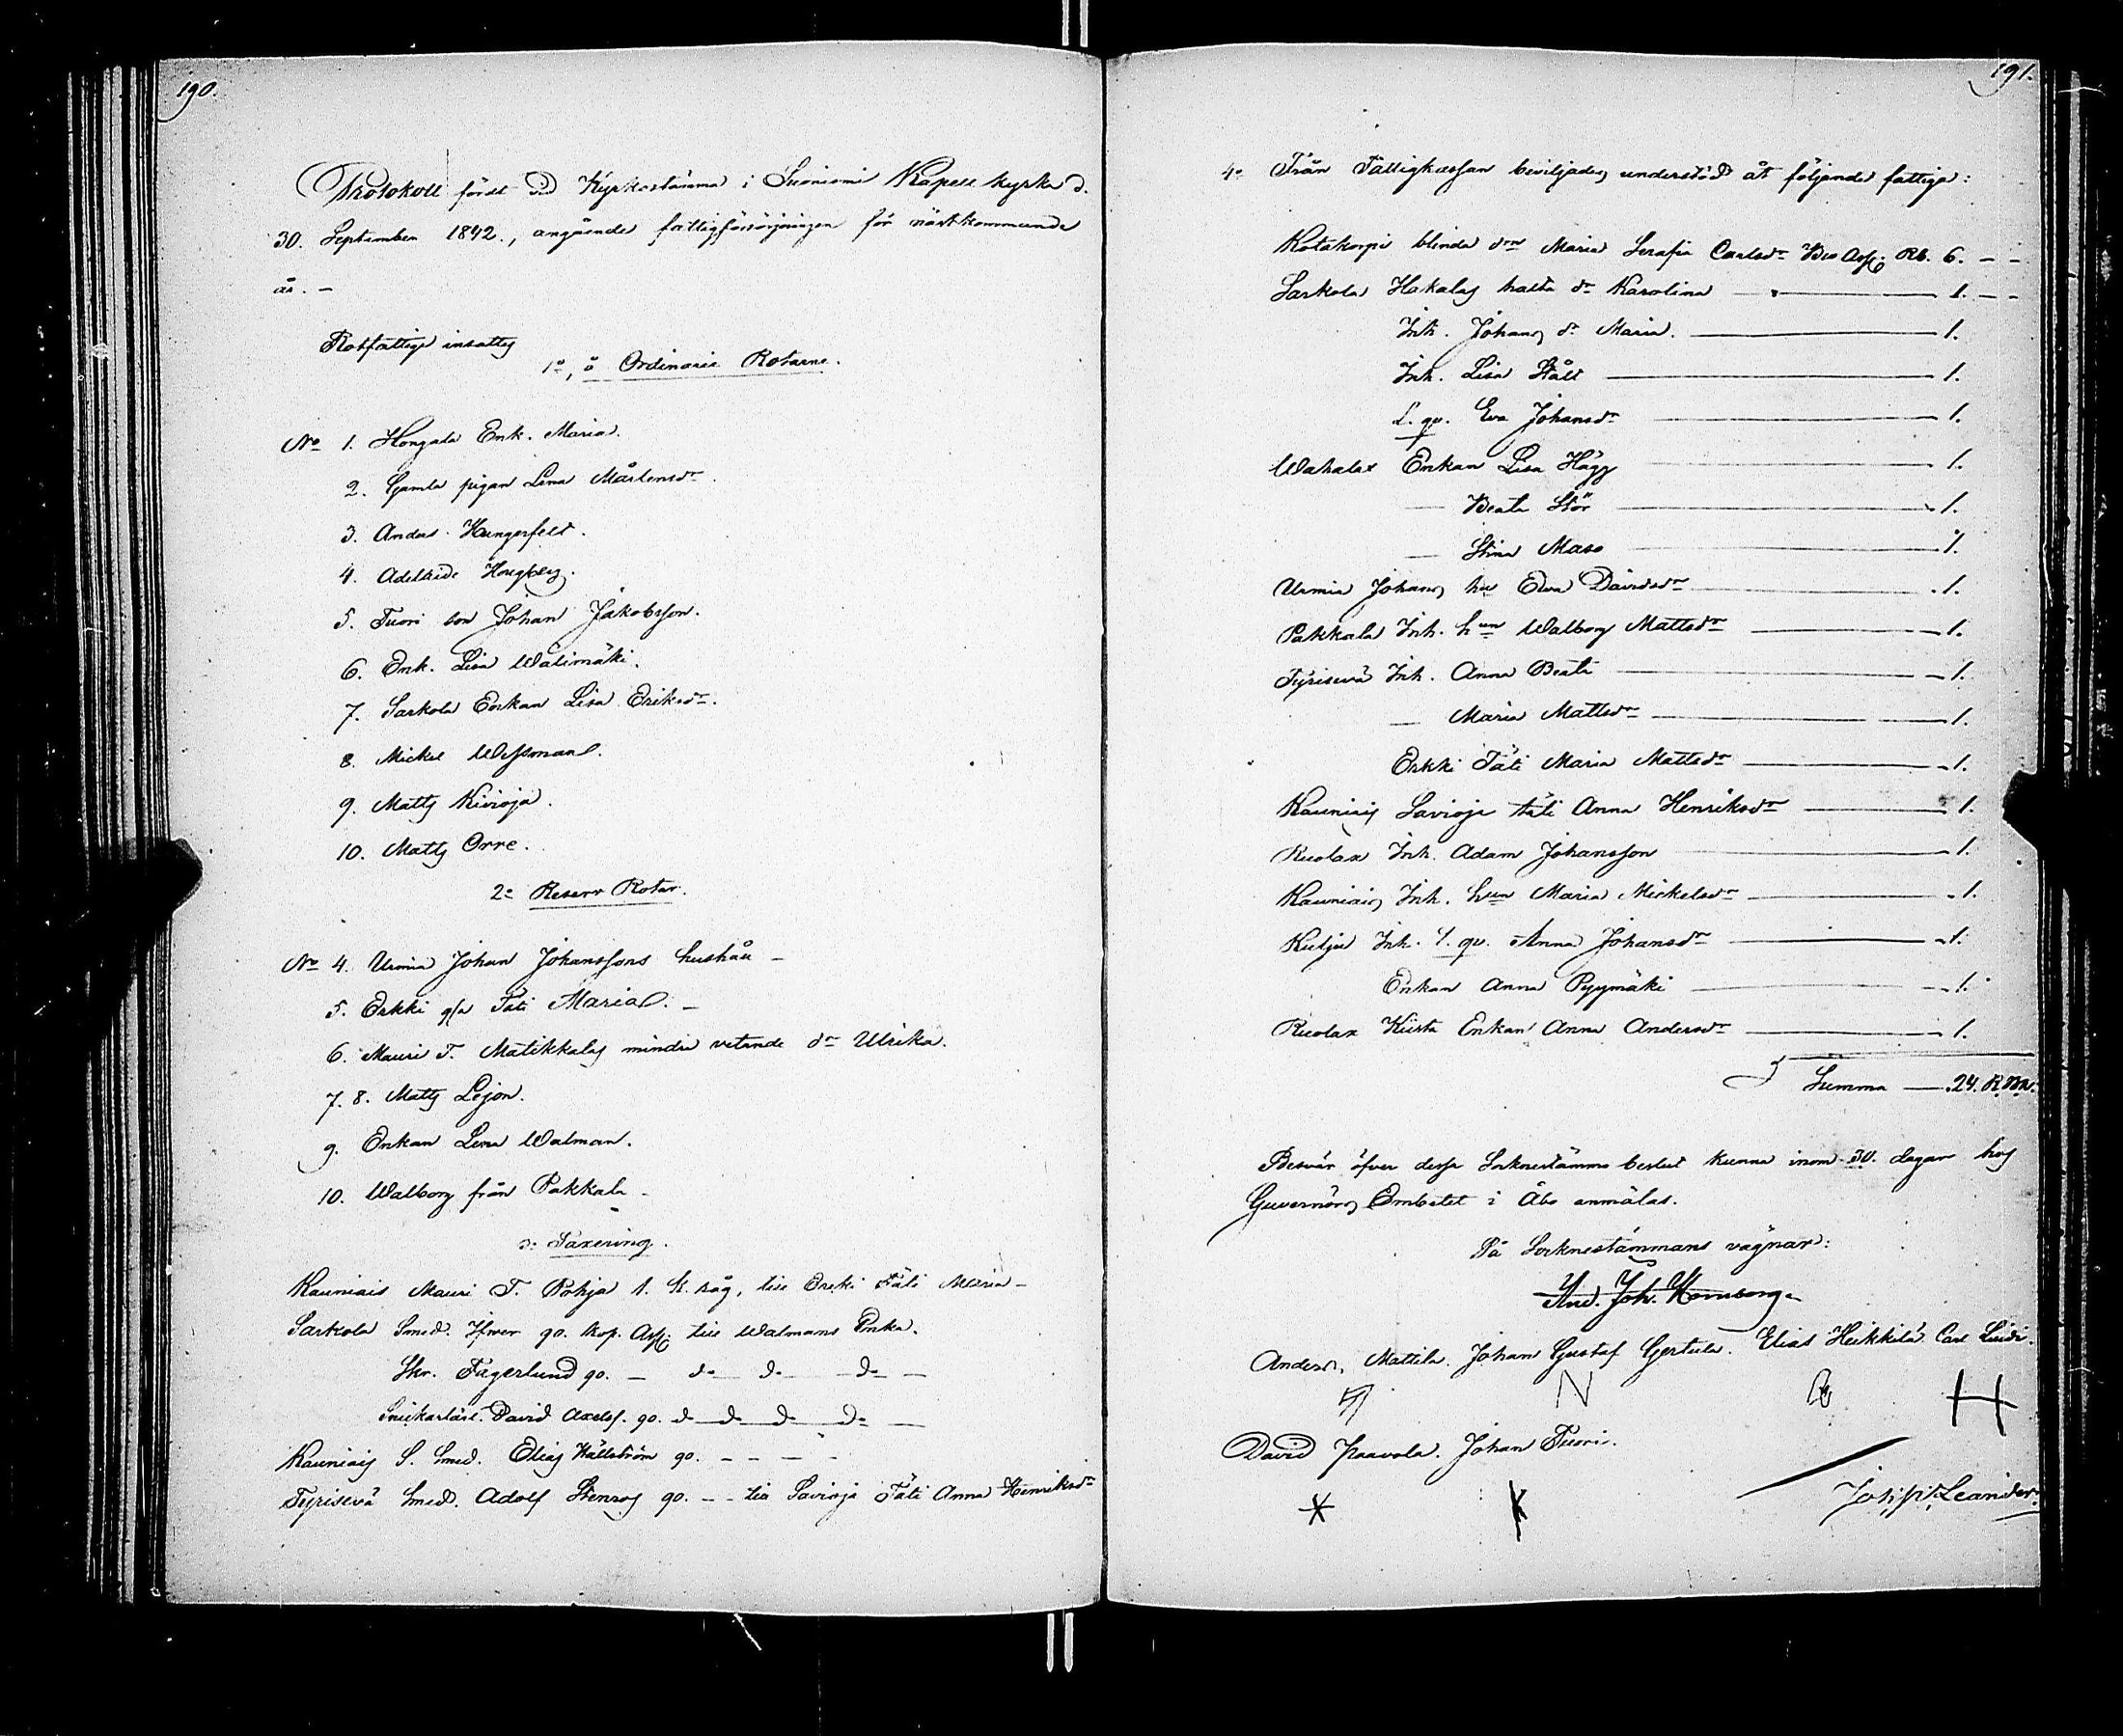 190.
Protokoll fördt vid Kyrkostämma i Suoniemi Kapell kyrka d.
30. September 1842., angående fattigförsörjningen för nästkommande
år. –
Rotfattige insattes
1o, i Ordinarie Rotarne.
No 1. Hongala Enk. Maria.
2. Gamla pigan Lena Mårtensdr.
3. Anders Hungerfelt.
4. Adelaide Hougberg.
5. Tuori son Johan Jakobsson.
6. Enk. Lisa Wälimäki.
7. Sarkola Enkan Lisa Eriksdr.
8. Mickel Wessman.
9. Matts Kivioja.
10. Matts Orre.
2o Reserv Rotar.
No 4. Urmia Johan Johanssons hushåll –
5. Erkki gla Täti Maria. –
6. Mauri T. Matikkalas mindre vetande dr Ulrika.
7. 8. Matts Lejon.
9. Enkan Lena Walman.
10. Walborg från Pakkala –
3o Taxering.
Kauniais Mauri T. Pohja 1. k. råg, till Erkki Täti Maria –
Sarkola Smed. 90. kop. Ass. till Walmans Enka.
Skr. Fagerlund 90. – do do do –
David Axelss. 90. do do do do –
Kauniais S. Smed. Elias Hällström 90. – – – –
Tyrisevä Smed. Adolf Stenros 90. – – till Savioja Täti Anna Henriksdr
191.
4o Från Fattigkassan beviljades understöd åt följande fattige:
Kotakorpi blinda drn Maria Serafia Carlsdr Bco Ass. Rb. 6. – –
Sarkola Hakalas halta dr Karolina — 1. – –
Inh. Johans dr Maria. — 1.
Inh. Lisa Stålt — 1.
L. qv. Eva Johansdr — 1.
Wahalax Enkan Lisa Hägg — 1.
— Beata Stör — 1.
— Stina Maso — 1.
Urmia Johans hu Eva Davidsdr — 1.
Pakkala Inh. hun Walborg Mattsdr — 1.
Tyrisevä Inh. Anna Beata — 1.
— Maria Mattsdr — 1.
Erkki Täti Maria Mattsdr — 1.
Kauniais Savioja täti Anna Henriksdr — 1.
Kuolax Inh. Adam Johansson — 1.
Kauniais Inh. hun Maria Mickelsdr — 1.
Kulju Inh. l. qv. Anna Johansdr — 1.
Enkan Anna Pyymäki — 1.
Kuolax Kiista Enkan Anna Andersdr — 1.
Summa — 24. R. Ba.
Besvär öfver dessa Sockneståmmo beslut kunna inom 30. dagar hos
Guvernörs Embetet i Åbo anmälas.
På Socknestämmans vägnar:
And. Joh. Hornborg.
Anders Mattila. Johan Gustaf Gertula. Elias Heikkilä. Carl
N H
David Paavola. Johan Tuori.
Leander